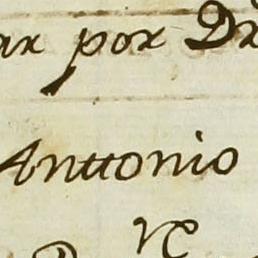 ar por Dr
Anttonio